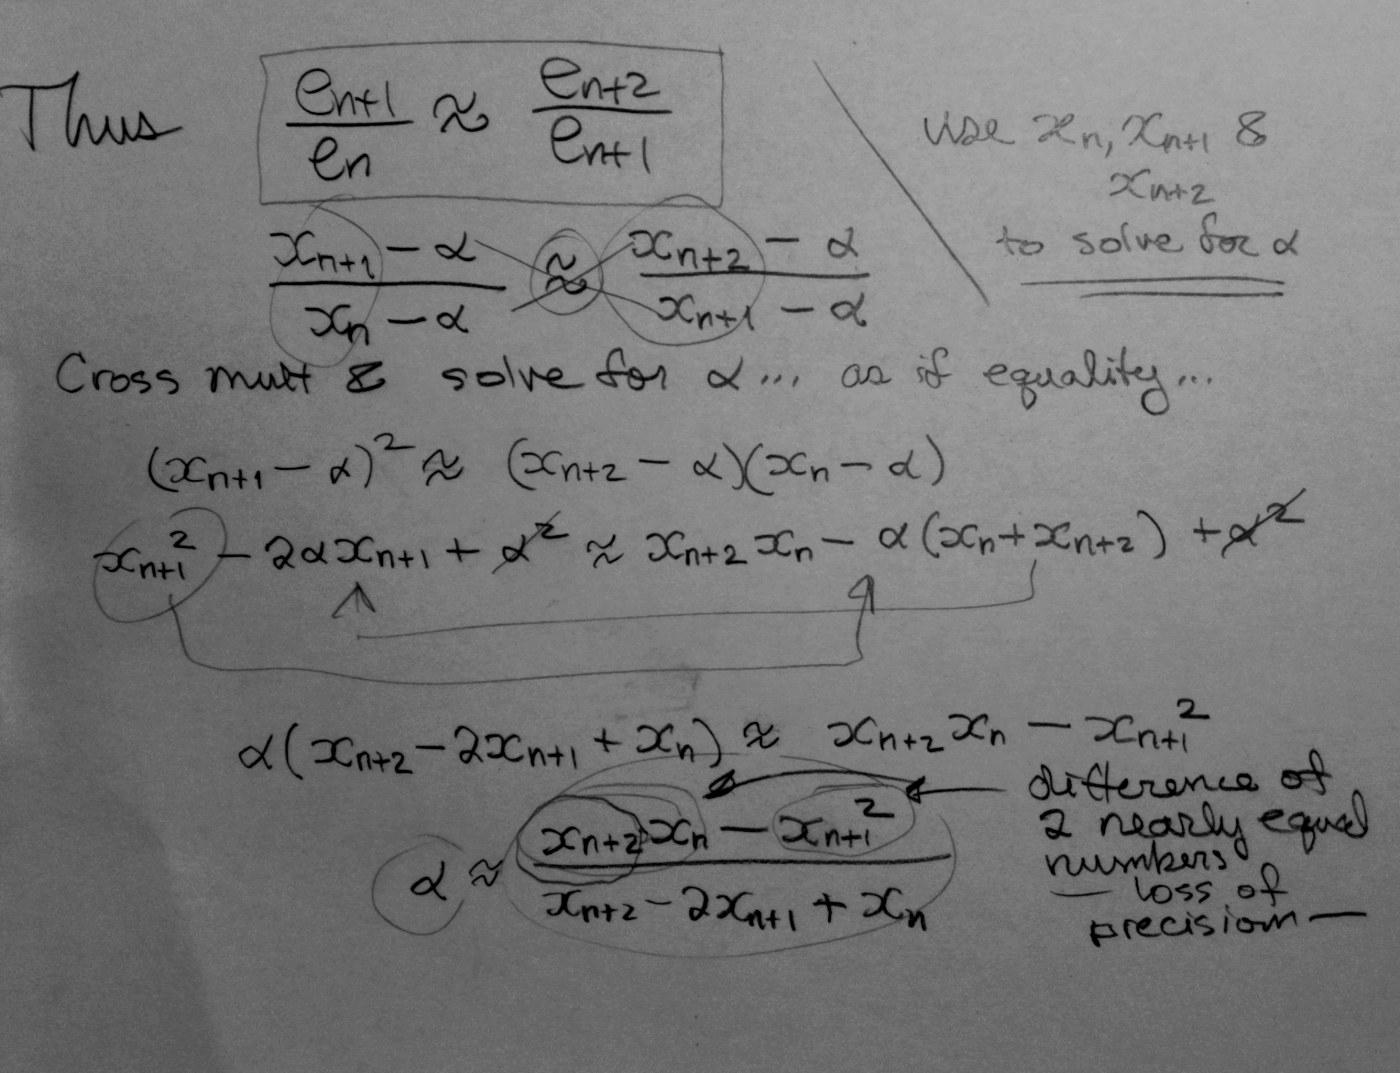 Thus e_{n+1}/e_n ≈ e_{n+2}/e_{n+1}
use x_n, x_{n+1} &
x_{n+2}
to solve for α
(x_{n+1} - α)/(x_n - α) ≈ (x_{n+2} - α)/(x_{n+1} - α)
Cross mult & solve for α... as if equality...
(x_{n+1} - α)^2 ≈ (x_{n+2} - α)(x_n - α)
x_{n+1}^2 - 2αx_{n+1} + α^2 ≈ x_{n+2} x_n - α(x_n + x_{n+2}) + α^2
α(x_{n+2} - 2x_{n+1} + x_n) ≈ x_{n+2} x_n - x_{n+1}^2
α ≈ (x_{n+2} x_n - x_{n+1}^2)/(x_{n+2} - 2x_{n+1} + x_n)
difference of
2 nearly equal
numbers
— loss of
precision —